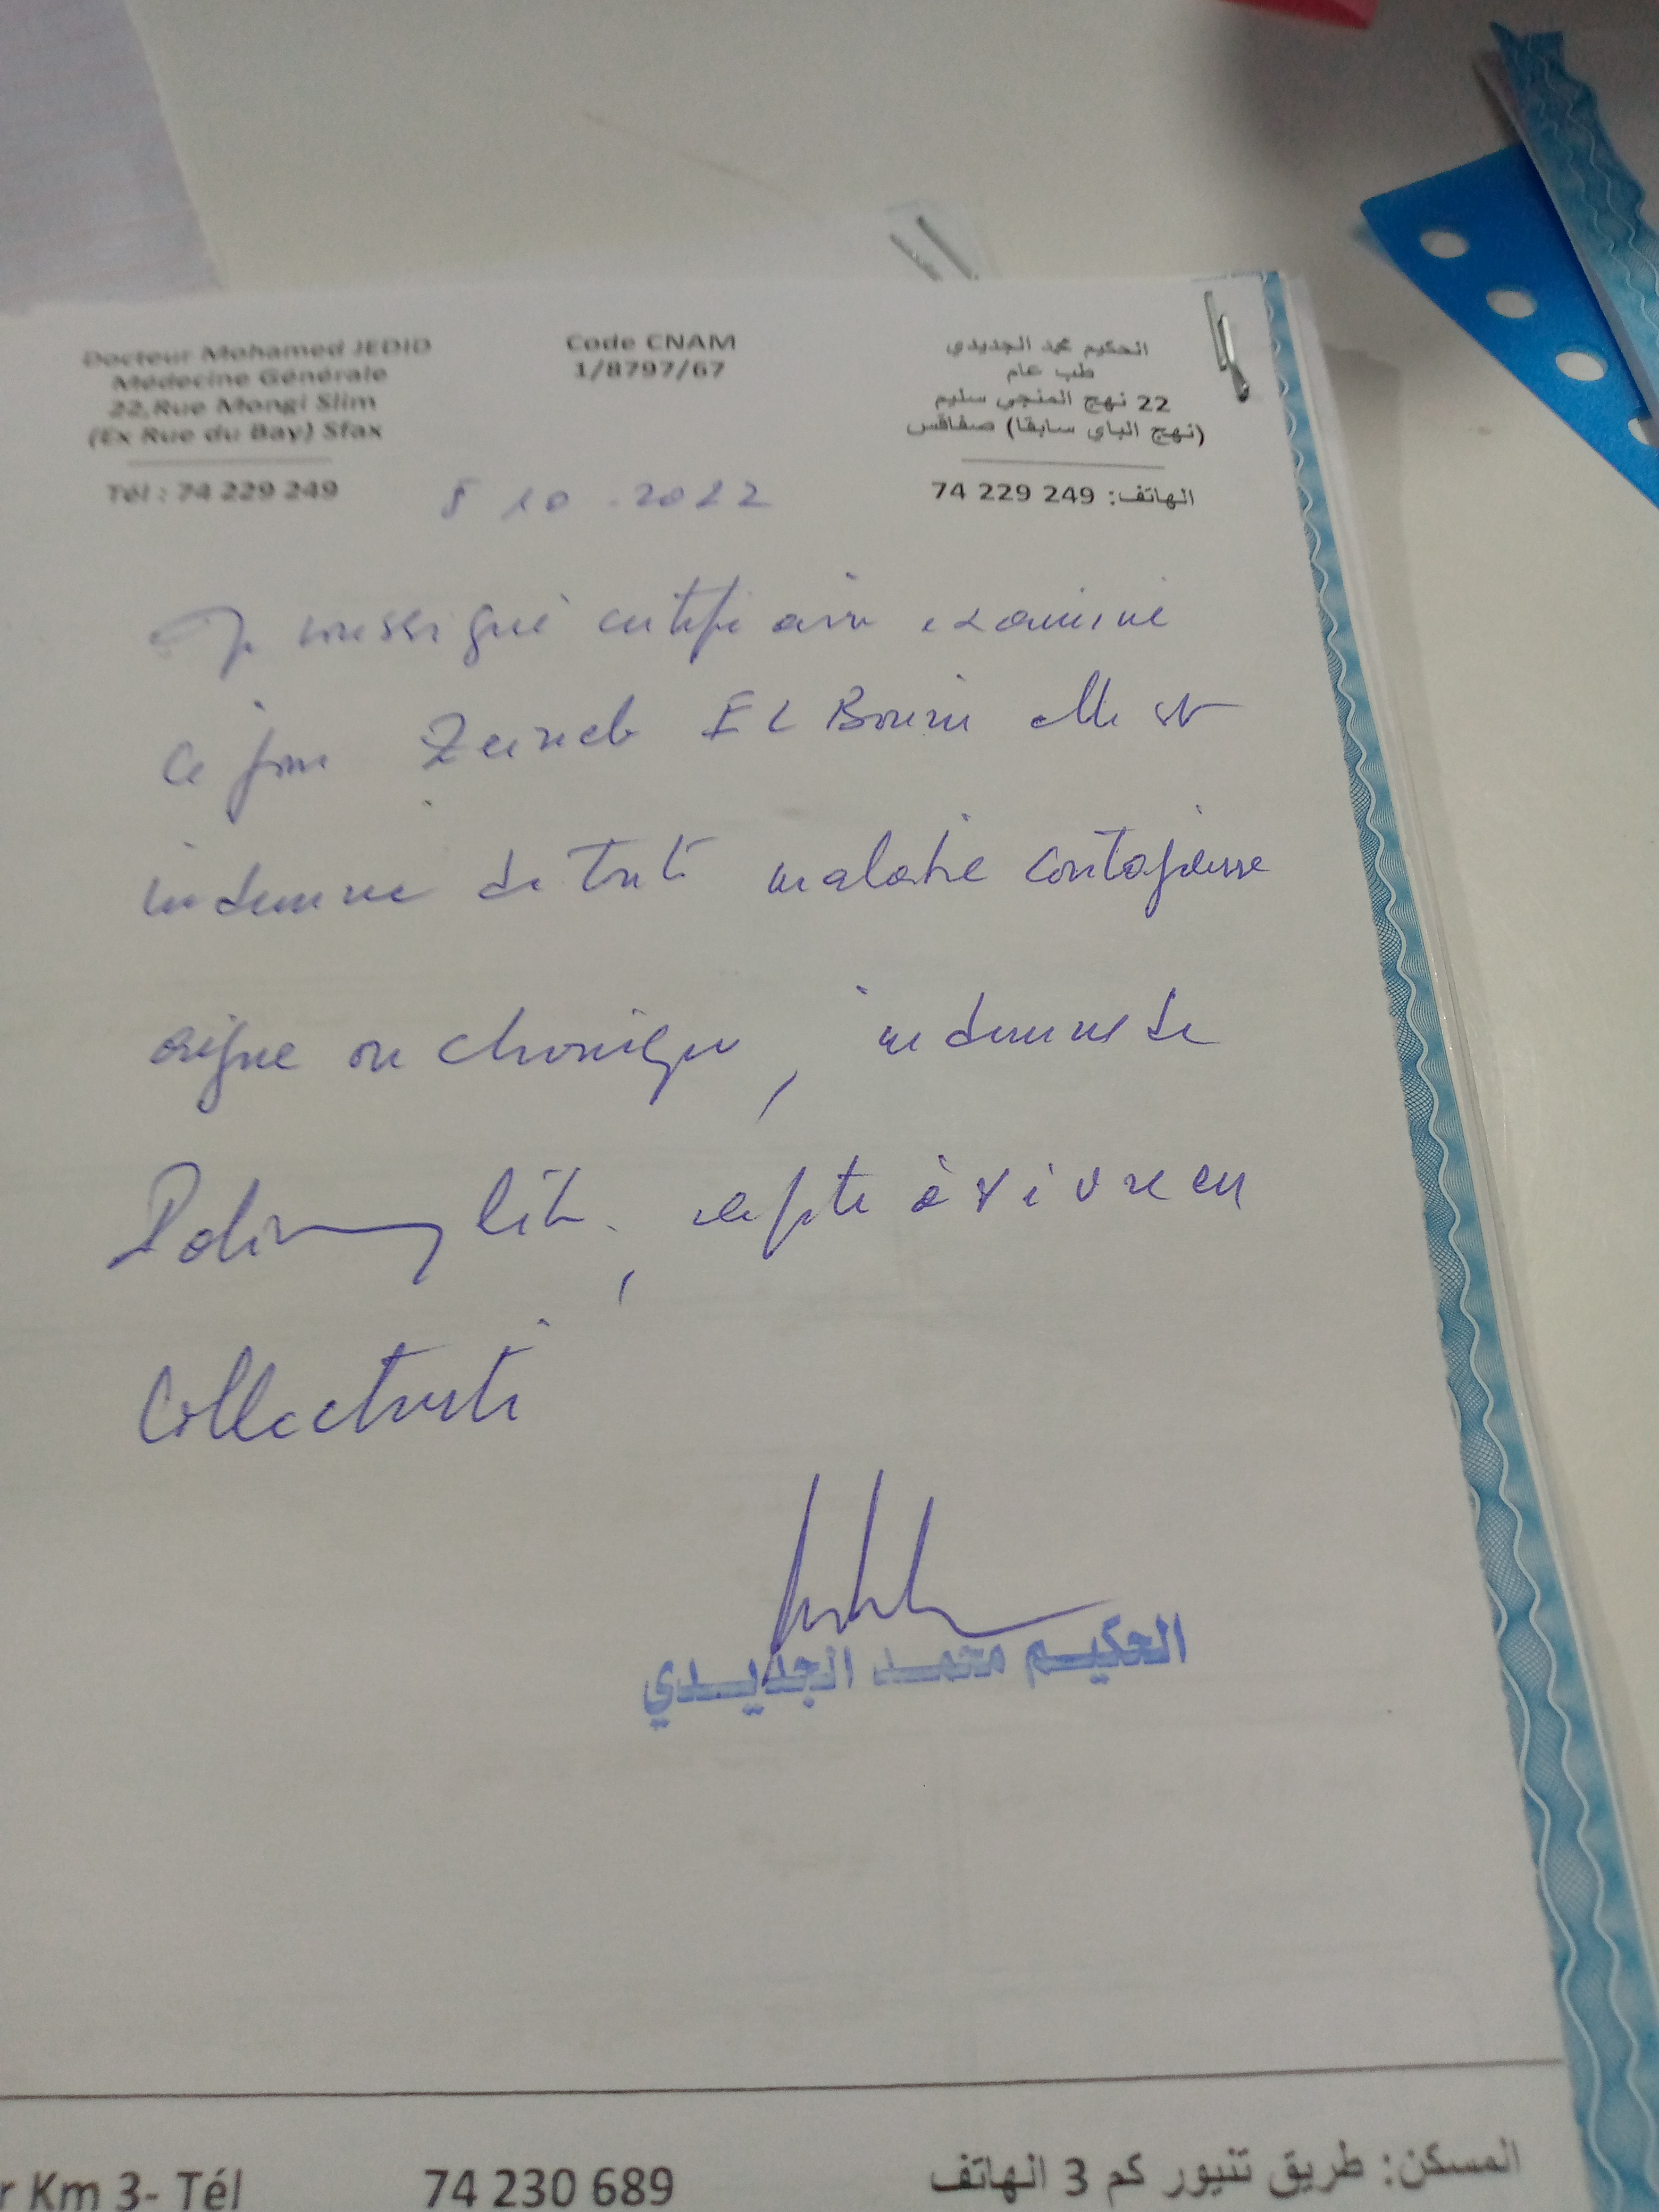 Docteur Mohamed JEDID
Médecine Générale
22,Rue Mongi Slim
(Ex Rue du Bay) Sfax
Tél : 74 229 249
Code CNAM
1/8797/67
الحكيم محمد الجديدي
طب عام
22 نهج المنجي سليم
(نهج الباي سابقا) صفاقس
الهاتف: 74 229 249
8 10 . 2022
Je soussigné certifie avoir examiné
ce jour Zeineb EL Bouri elle est
indemne de toute maladie contagieuse
aigue ou chronique, indemne de
, apte à vivre en
Collectivité
الحكيم محمد الجديدي
r Km 3- Tél 74 230 689
المسكن: طريق تنيور كم 3 الهاتف